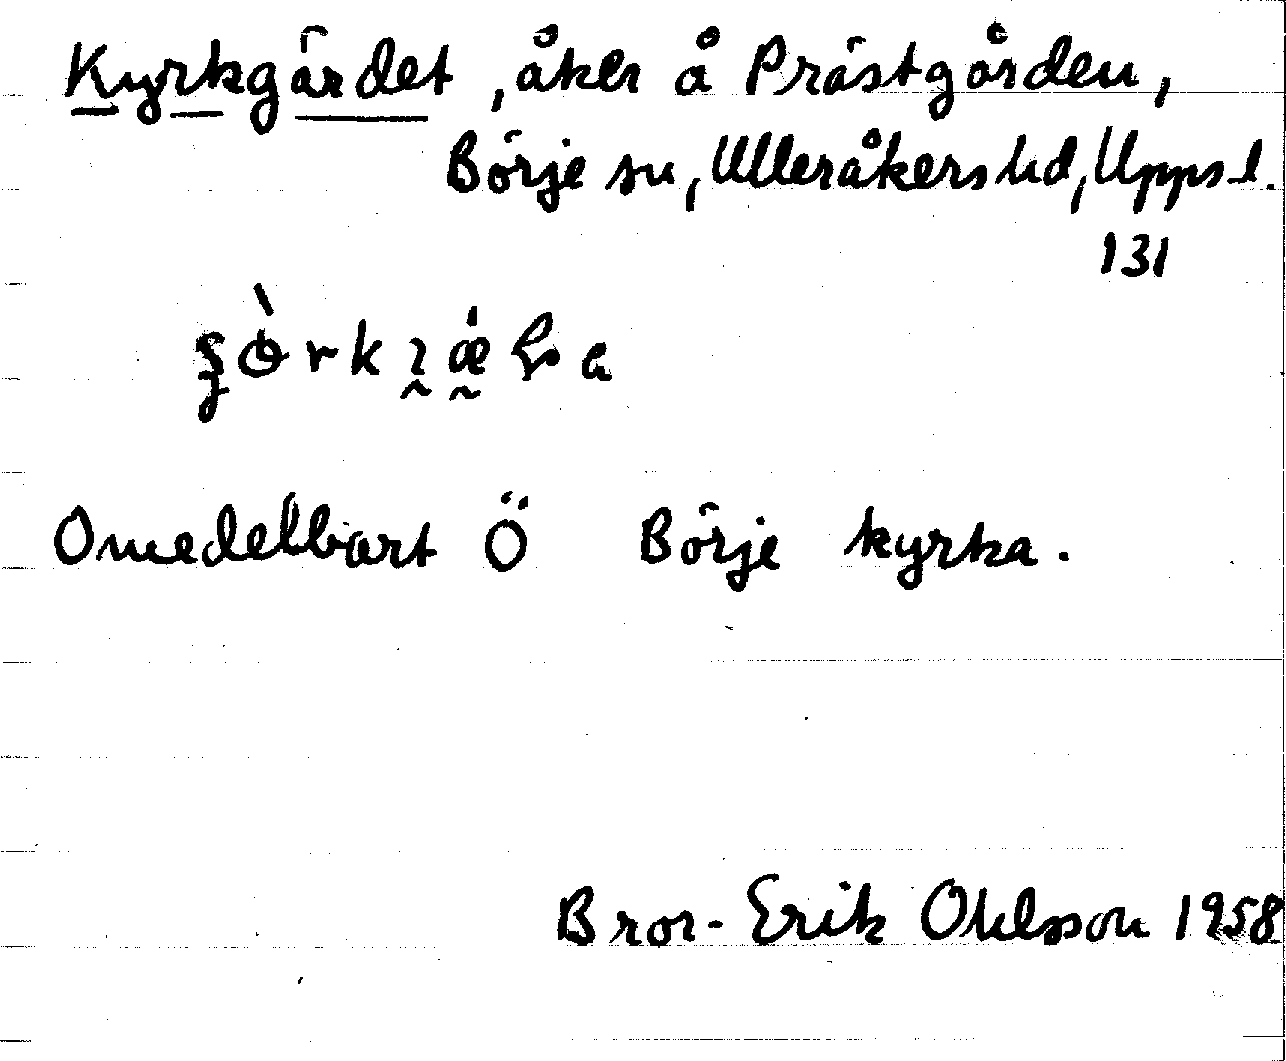 Kyrkgärdet, åker å Prästgården,
Börje sn, Ulleråkers hd, Uppsl.
131
Omedelbart Ö Börje kyrka.
Bror-Erik Ohlsson 1958